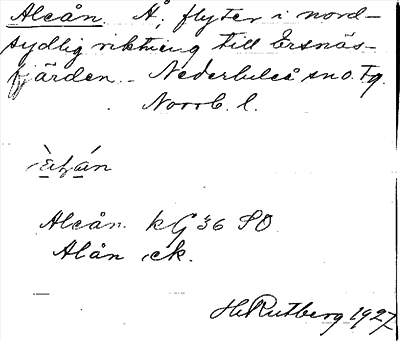 Aleån Å, flyter i nord-
sydlig riktning till Ersnäs-
fjärden. Nederluleå sn o. tg.
Norrb. l.
Aleån. kG 36 SO
Alån ck.
H. Rutberg 1927.